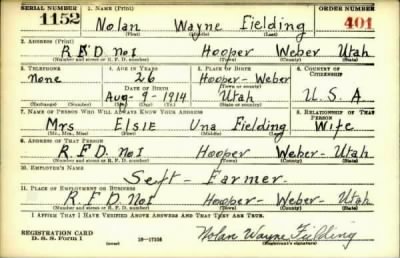 SERIAL NUMBER 1. NAME (Print) ORDER NUMBER
1152 Nolan Wayne Fielding 401
(First) (Middle) (Last)
2. ADDRESS (Print)
R.F.D. No 1 Hooper Weber Utah
(Number and street or R. F. D. number) (Town) (County) (State)
3. TELEPHONE 4. AGE IN YEARS 5. PLACE OF BIRTH 6. COUNTRY OF CITIZENSHIP
None 26 Hooper-Weber
DATE OF BIRTH (Town or county)
Aug-9-1914 Utah U.S.A.
(Exchange) (Number) (Mo.) (Day) (Yr.) (State or country)
7. NAME OF PERSON WHO WILL ALWAYS KNOW YOUR ADDRESS 8. RELATIONSHIP OF THAT PERSON
Mrs Elsie Una Fielding Wife
(Mr., Mrs., Miss) (First) (Middle) (Last)
9. ADDRESS OF THAT PERSON
R.F.D. No 1 Hooper Weber- Utah
(Number and street or R. F. D. number) (Town) (County) (State)
10. EMPLOYER'S NAME
Self- Farmer-
11. PLACE OF EMPLOYMENT OR BUSINESS
R.F.D. No 1 Hooper- Weber- Utah
(Number and street or R. F. D. number) (Town) (County) (State)
I AFFIRM THAT I HAVE VERIFIED ABOVE ANSWERS AND THAT THEY ARE TRUE.
REGISTRATION CARD Nolan Wayne Fielding
D. S. S. Form 1 (Registrant's signature)